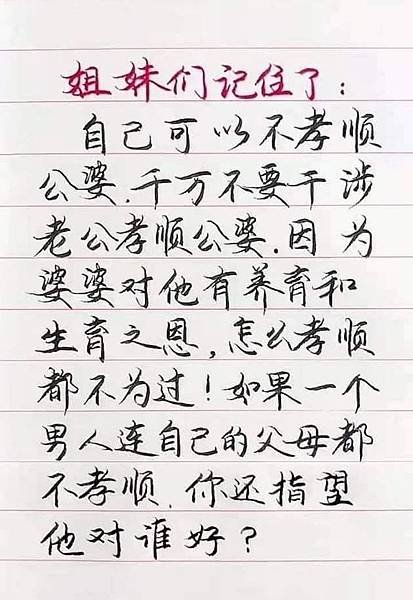 姐妹们记住了:
自己可以不孝顺
公婆.千万不要干涉
老公孝顺公婆.因为
婆婆对他有养育和
生育之恩,怎么孝顺
都不为过!如果一个
男人连自己的父母都
不孝顺.你还指望
他对谁好?